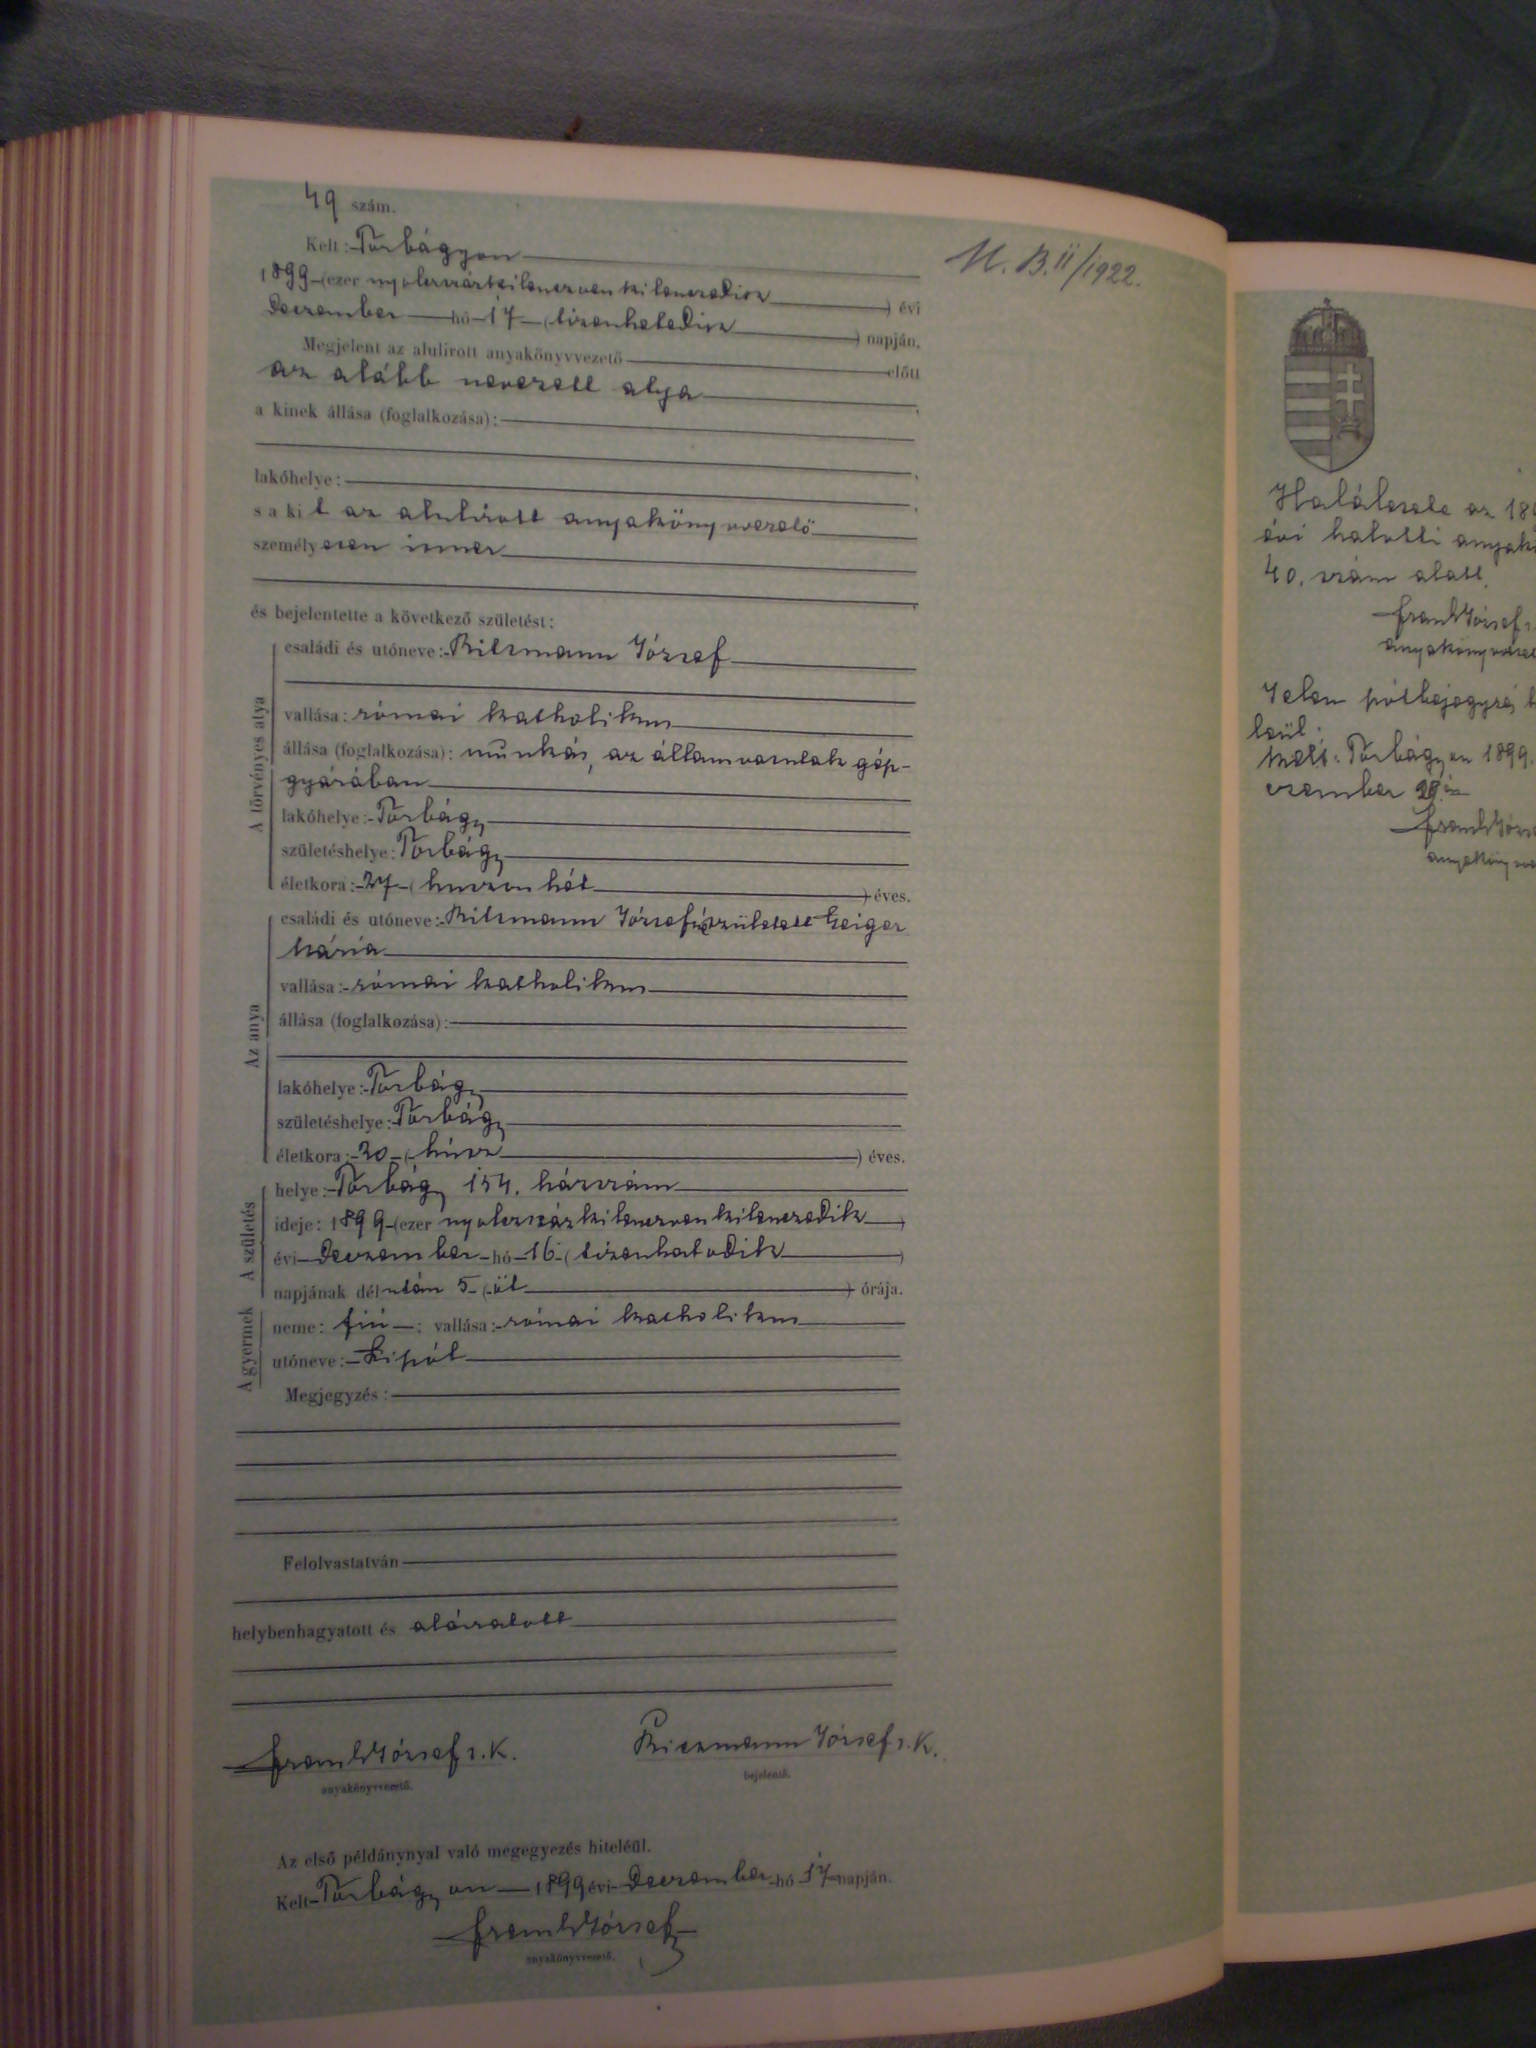 49 szám.
Kelt: Törbágyon
1899 (ezer nyolczszázkilenczvenkilenczedik) évi
Deczember hó 17 (tizenhetedik) napján,
Megjelent az alulirott anyakönyvvezető előtt
az alább nevezett atya,
a kinek állása (foglalkozása):
lakóhelye:
s a kit az alulirott anyakönyvvezető
személyesen ismer
és bejelentette a következő születést:
A törvényes atya
családi és utóneve: Ritzmann József
vallása: római katholikus
állása (foglalkozása): munkás, az államvasutak gép-
gyárában
lakóhelye: Törbágy
születéshelye: Törbágy
életkora: 27 (huszonhét) éves.
Az anya
családi és utóneve: Ritzmann Józsefné született Geiger
Mária
vallása: római katholikus
állása (foglalkozása):
lakóhelye: Törbágy
születéshelye: Törbágy
életkora: 20 (húsz) éves.
A születés
helye: Törbágy 154. házszám
ideje: 1899 (ezer nyolczszázkilenczvenkilenczedik)
évi Deczember hó 16 (tizenhatodik)
napjának délután 5 (öt) órája.
A gyermek
neme: fiú; vallása: római katholikus
utóneve: Lipót
Megjegyzés:
Felolvastatván
helybenhagyatott és aláiratott
Frank József s. k.
anyakönyvvezető.
Riczmann József s. k.
bejelentő.
Az első példánynyal való megegyezés hiteléül.
Kelt Törbágyon 1899 évi Deczember hó 17 napján.
Frank József
anyakönyvvezető.
M. B. II/1922.
Halálesete az 189
évi halotti anyakö
40. szám alatt.
Frank József s.
anyakönyvvezet
Jelen pótbejegyzés
leül:
Kelt: Törbágyon 1899.
czember 28án
Frank Józse
anyakönyvve